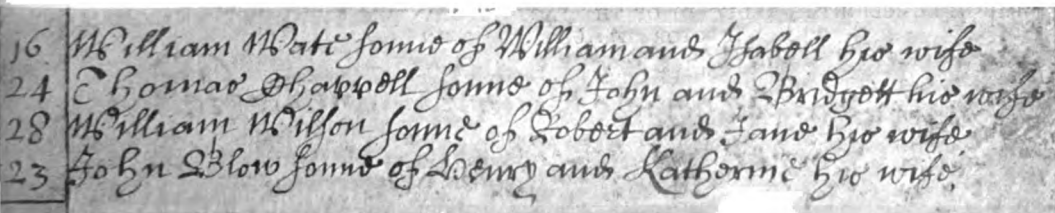 16 William Wate sonne of William and Isabell his wife
24 Thomas Chappell sonne of John and Bridgett his wife
28 William Willson sonne of Robert and Jane his wife
23 John Blow sonne of Henry and Katherine his wife